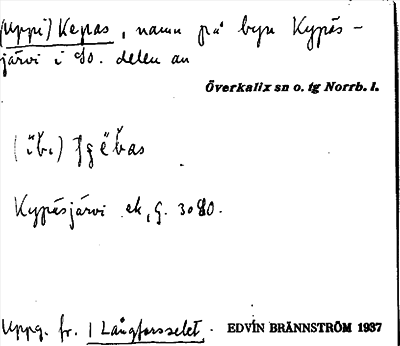 (Uppi) Kepas, namn på byn Kypäs-
järvi i SO. delen an
Överkalix sn o. tg Norrb. l.
Kypäsjärvi ek, G. 3080.
Uppg. fr. Långforsselet. EDVIN BRÄNNSTRÖM 1937